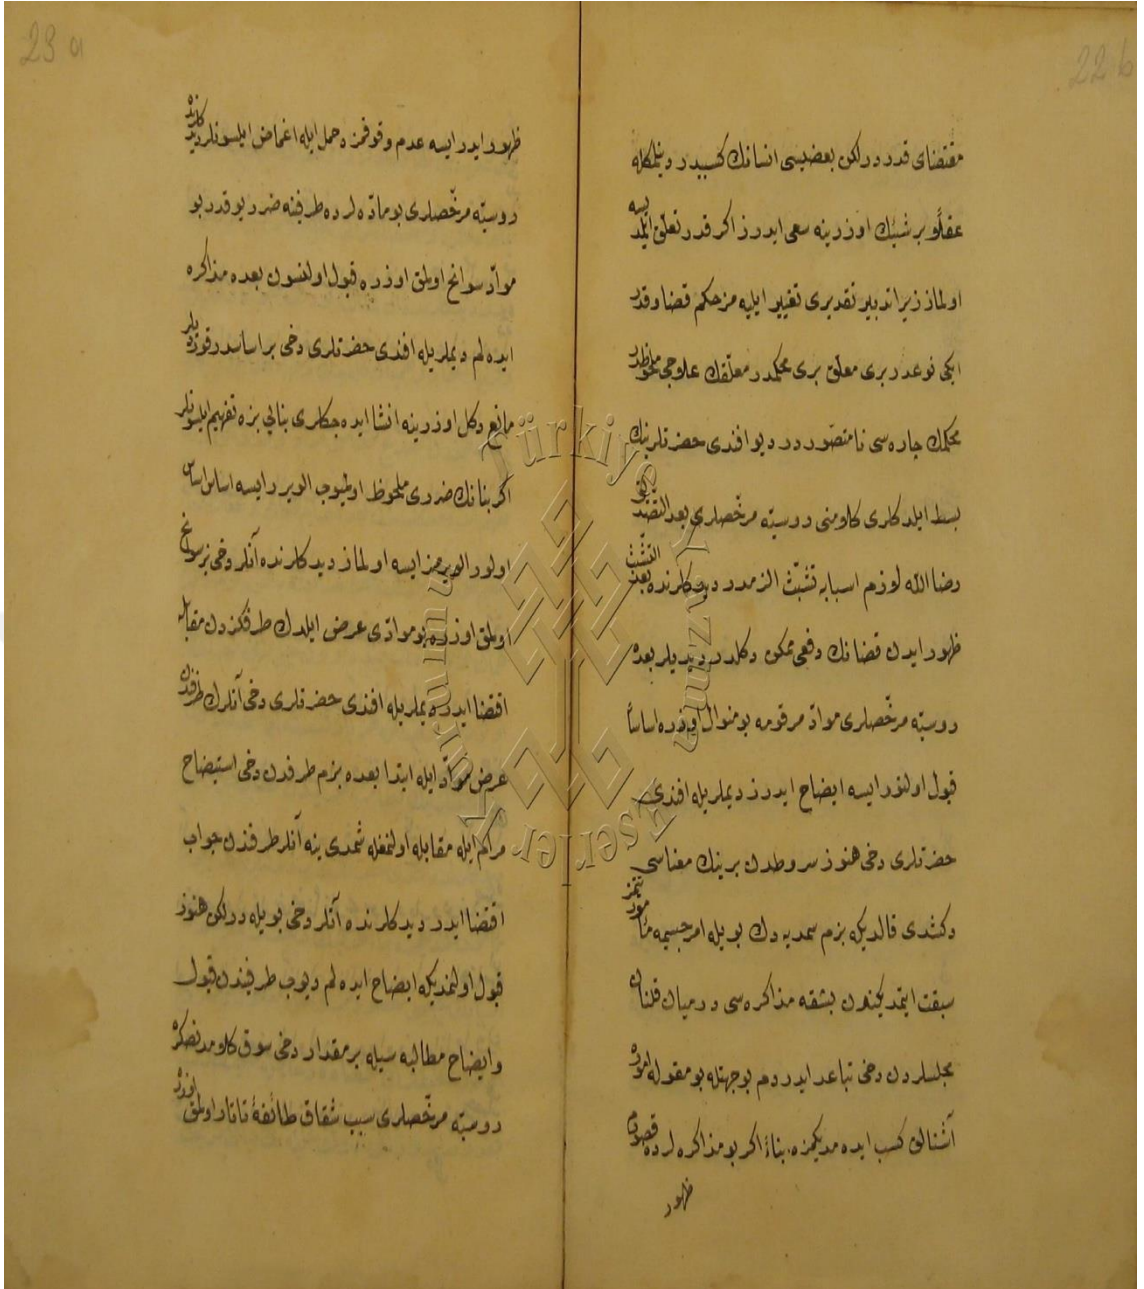 22 b
مقتضای قدردر لکن بعضیسی انسانك کسبیدر دینلمکله
عقلاً و بر شیئك اوزرینه سعی ایدرز اکر قدر تعلق ایلمدیسه
اولماز زیرا تدبیر تقدیری تغییر ایلیه مز حکم قضا و قدر
ایکی نوعدر بری معلق بری محکمدر معلقك علاجی ملحوظدر
محکمك چاره سی نا متصوردر دیو افندی حضرتلرینك
بسط ایلدکلری کلامنی روسیه مرخصلری بعد التصدیق
رضاء الله لازم اسبابه تشبث الزمدر دیدکلرنده بعد التشبث
ظهور ایدن قضانك دفعی ممکن دکلدر دیدیلر بعده
روسیه مرخصلری مواد مرقومه بو منوال اوزره اساساً
قبول اولنور ایسه ایضاح ایدرز دیملریله افندی
حضرتلری دخی هنوز شروطدن برینك معناسی
دکشدی قالدیکه بزم سمدیه دك بویله امر جسیمه مأموریتمز
سبقت ایتمدیکندن بشقه مذاکره سی در میان قلنان
مجلسلردن دخی تباعد ایدردم بو جهتله بو مقوله اموره
آشنالق کسب ایده مدیکمزه بناءً اکر بو مذاکره لرده قصورمز
ظهور
23 a
ظهور ایدر ایسه عدم وقوفمزه حمل ایله اغماض ایلسونلر دیدکلرنده
روسیه مرخصلری بو ماده لرده طرفینه ضرر یوقدر بو
مواد سوانح اولمق اوزره قبول اولنسون بعده مذاکره
ایده لم دیملریله افندی حضرتلری دخی بر اساسدر قوزدیلر
مانع دکل اوزرینه انشا ایده جکلری بنایی بزه تفهیم ایلسونلر
اکر بنانك ضرری ملحوظ اولمیوب الویرر ایسه اساس اساس
اولور الویرمز ایسه اولماز دیدکلرنده آنلر دخی بز سوانح
اولمق اوزره بو موادی عرض ایلدك طرفکزدن مقابله
اقتضا ایدر دیملریله افندی حضرتلری دخی آنلرك طرفندن
عرض مواد ایله ابتدا بعده بزم طرفدن دخی استیضاح
مرام ایله مقابله اولنمغله شمدی ینه آنلر طرفندن جواب
اقتضا ایدر دیدکلرنده آنلر دخی بویله در لکن هنوز
قبول اولنمدیکه ایضاح ایده لم دیوب طرفیندن قبول
و ایضاح مطالبه سیله بر مقدار دخی سوق کلامدنصکره
روسیه مرخصلری سبب شقاق طائفهٔ تاتار اولمق اوزره
Türkiye Yazma Eserler Kurumu